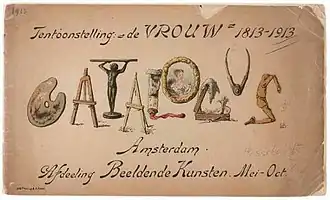 1913
Tentoonstelling "de VROUW" 1813-1913
CATALOGUS
Amsterdam.
Afdeeling Beeldende Kunsten. Mei-Oct.